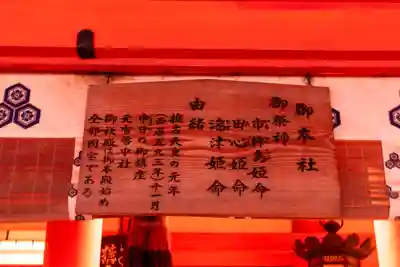 御本社
御祭神
市杵島姫命
田心姫命
湍津姫命
由緒
推古天皇の元年
(西暦五九三年)十一月
申日の御鎮座
元官幣中社
御社殿は御本殿始め
全部国宝である